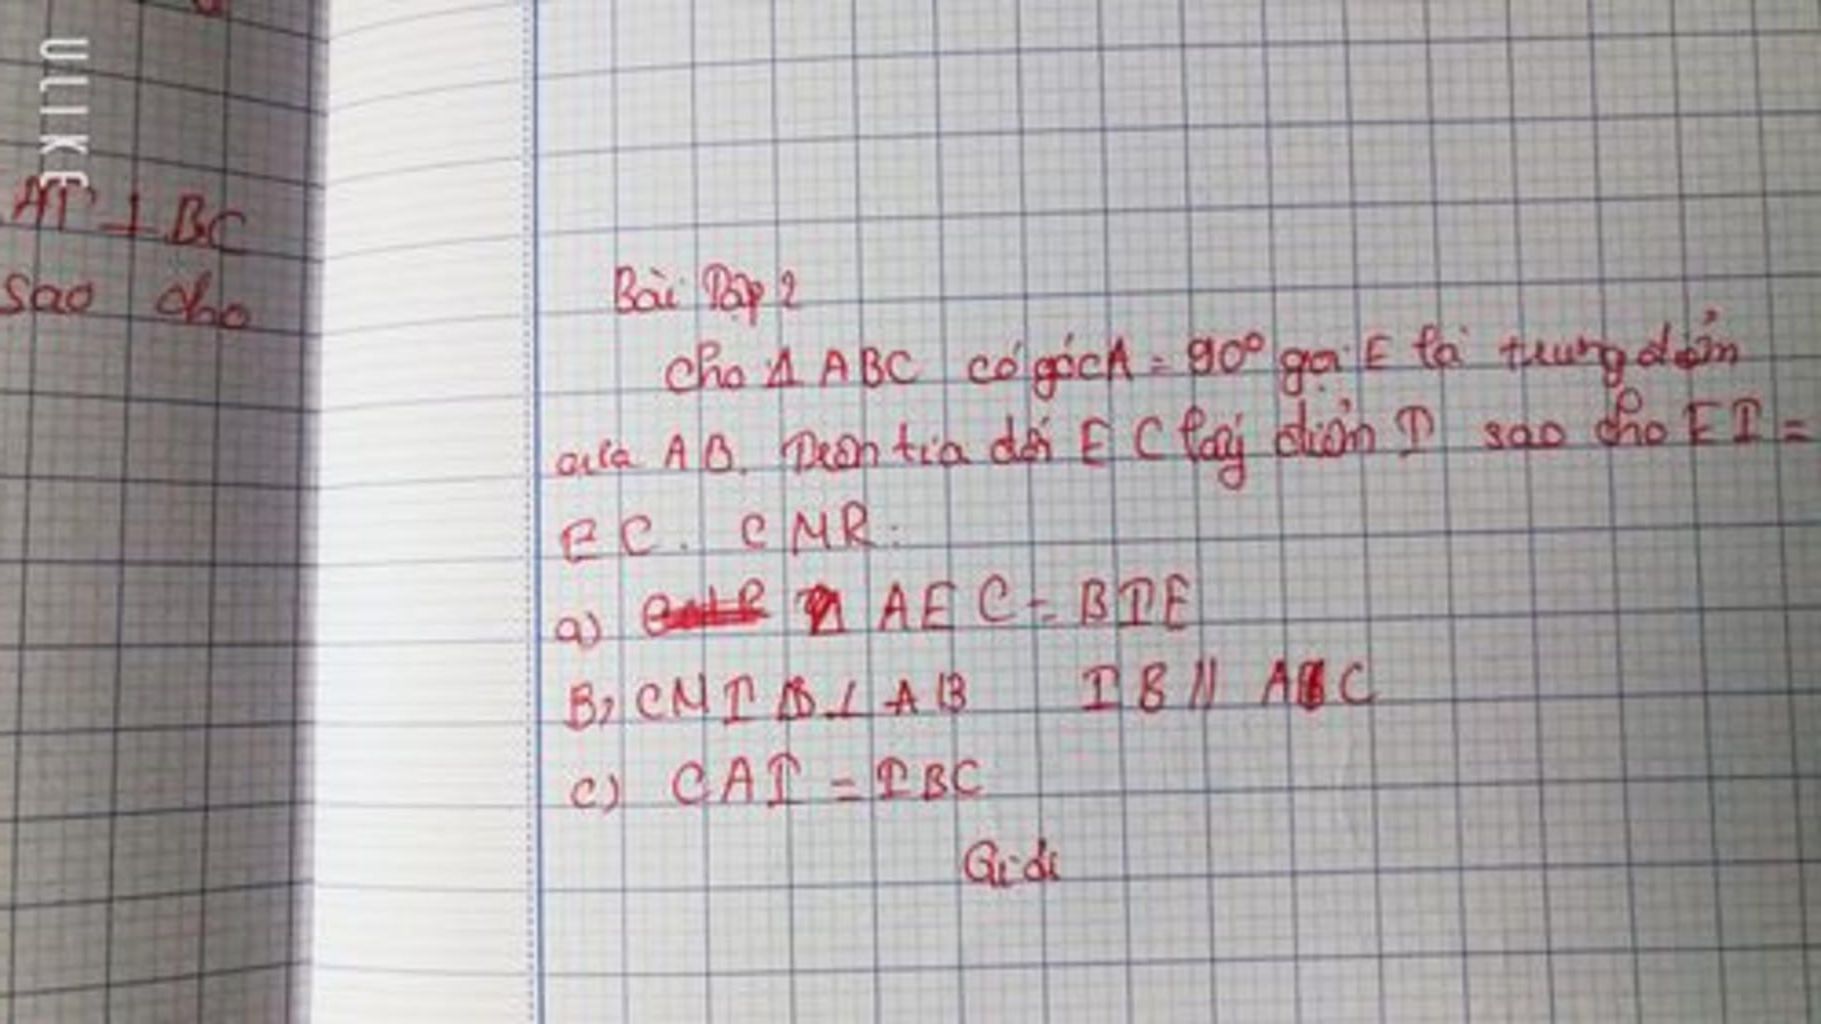 ULIKE
AI ⊥ BC
sao cho
Bài Tập 2
Cho Δ ABC có góc A = 90° gọi E là trung điểm
của AB. Trên tia đối EC lấy điểm I sao cho EI =
EC. CMR:
a) Δ AEC = BIE
B, CM IB ⊥ AB IB // AC
c) CAI = IBC
Giải